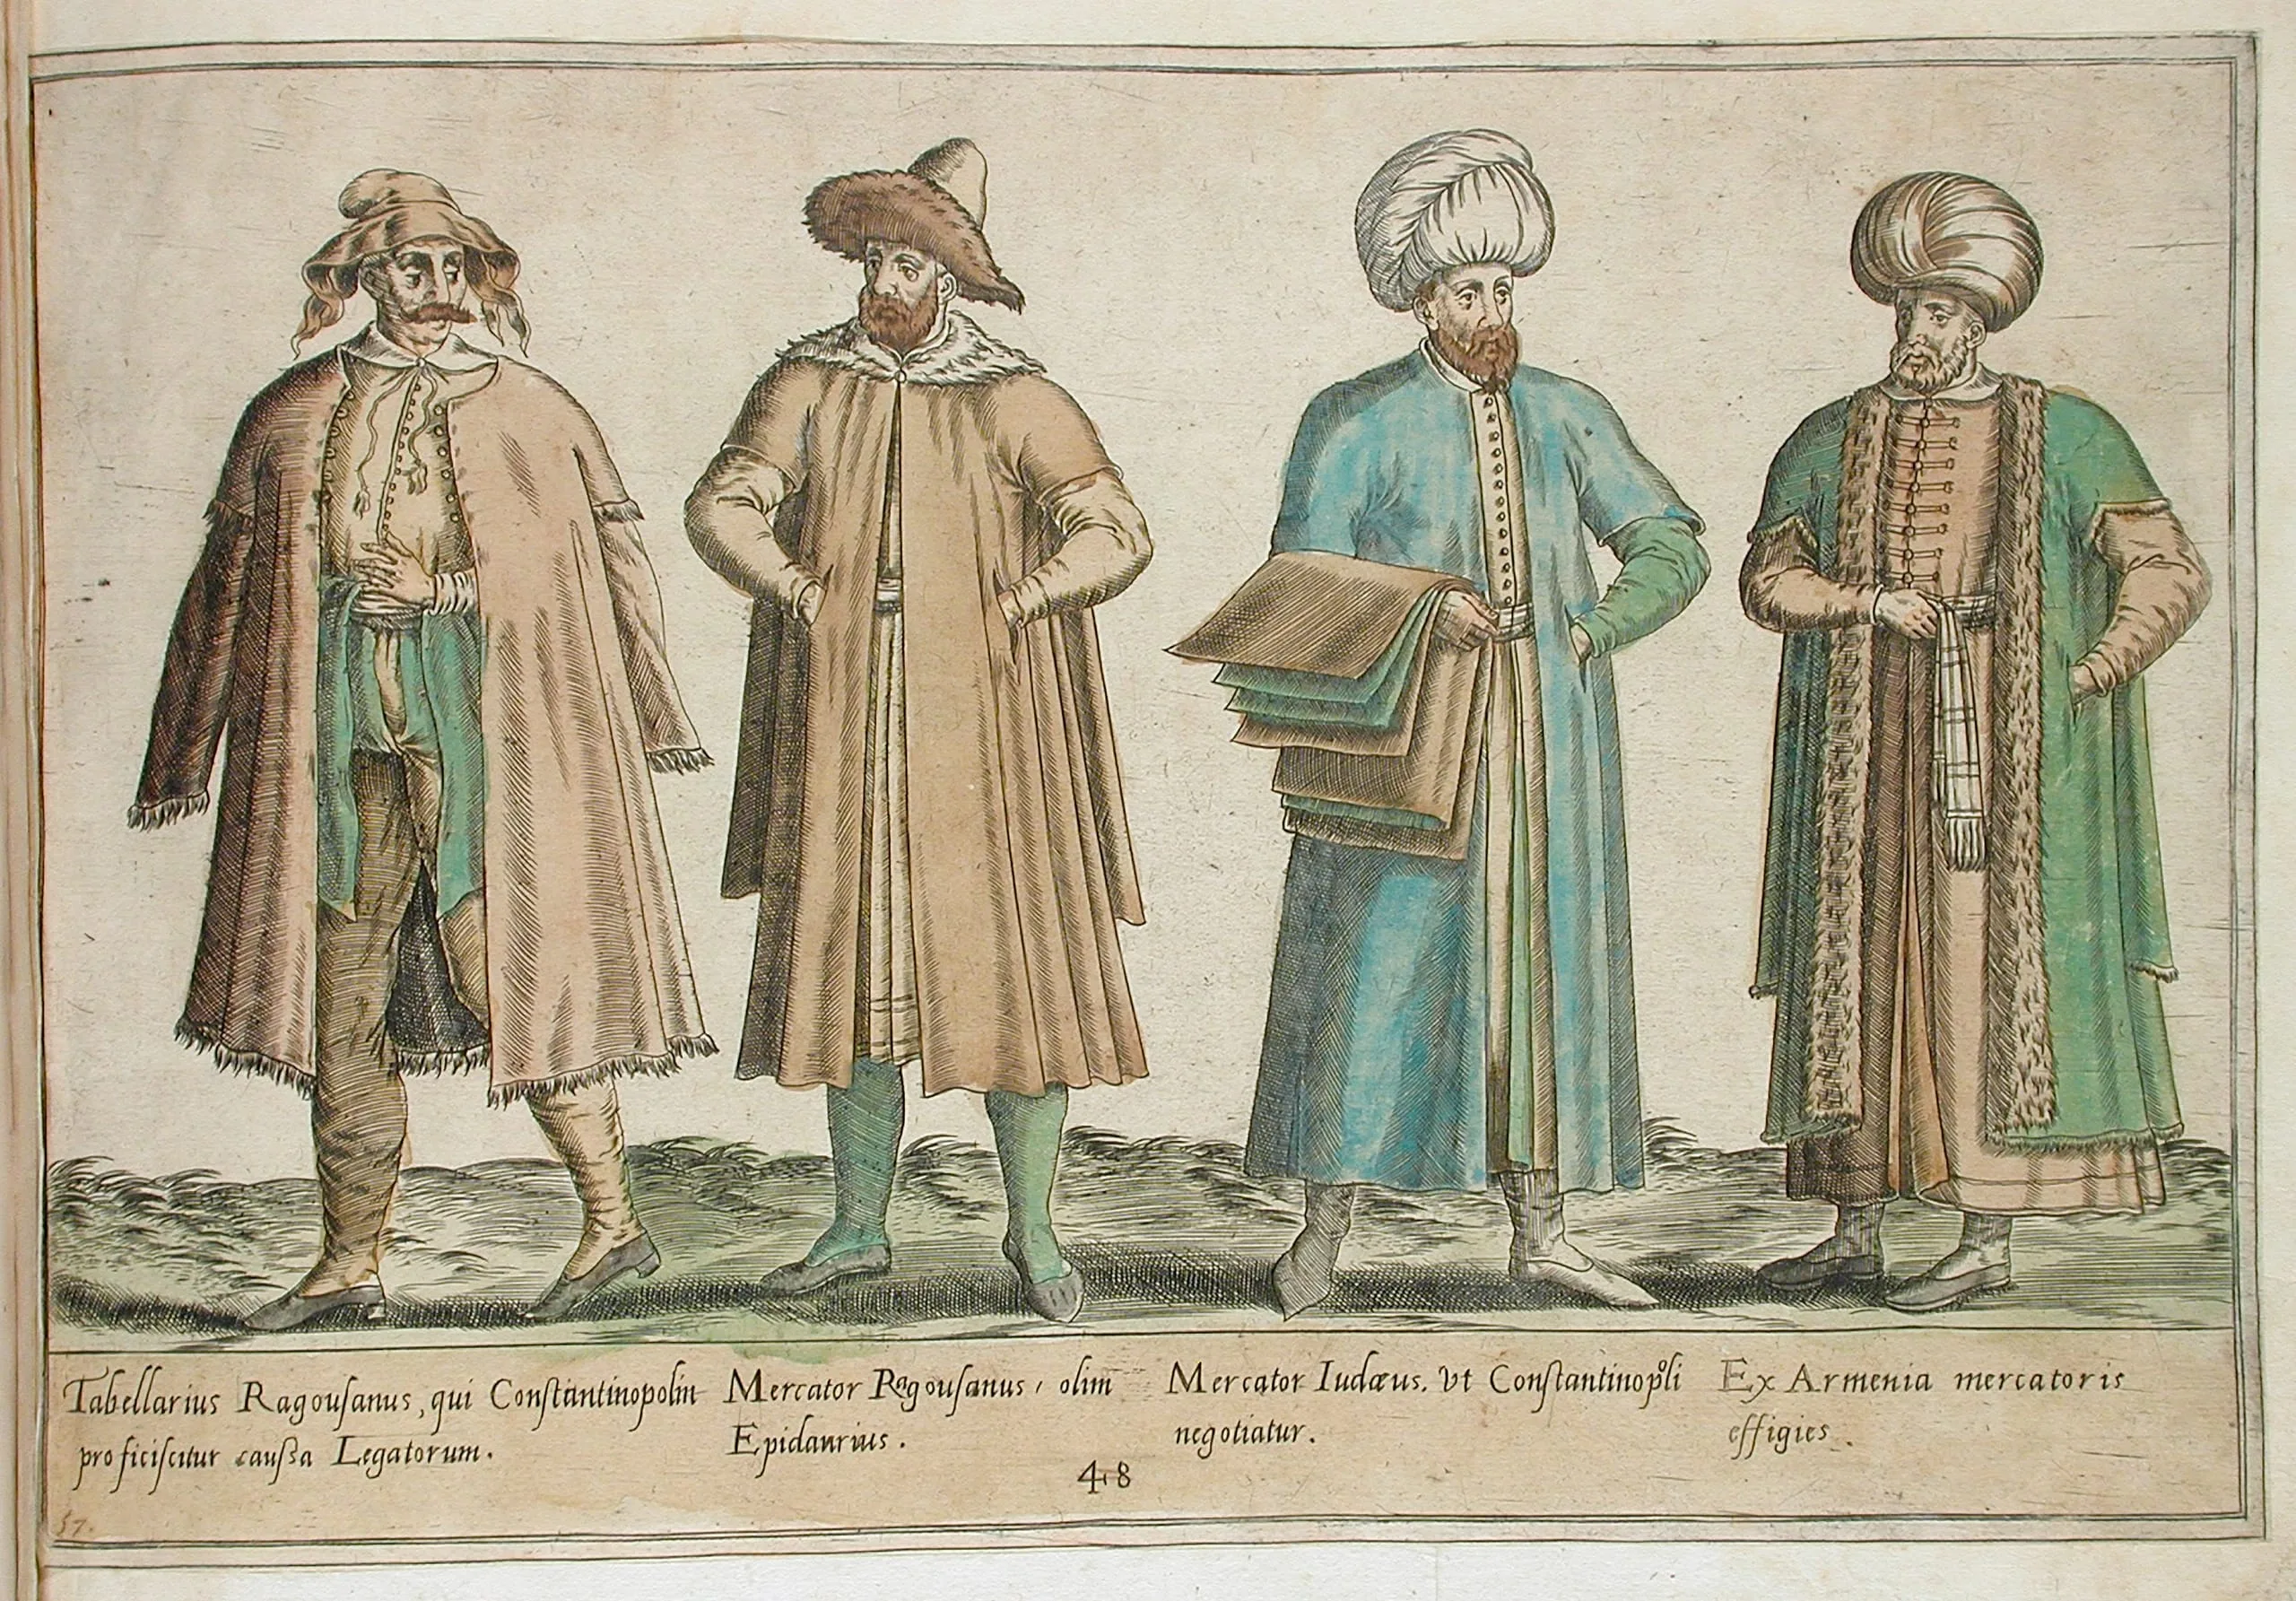 Tabellarius Ragousanus, qui Constantinopolin
proficiscitur caussa Legatorum.
Mercator Ragousanus, olim
Epidaurius.
Mercator Iudæus. Vt Constantinopoli
negotiatur.
Ex Armenia mercatoris
effigies.
48
57.